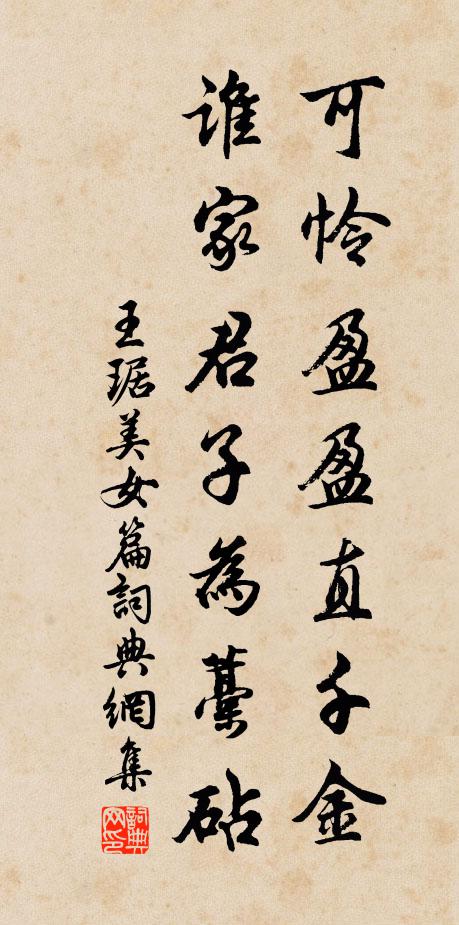 可怜盈盈直千金
谁家君子為藁砧
王琚美女篇詞典網集
詞典网印